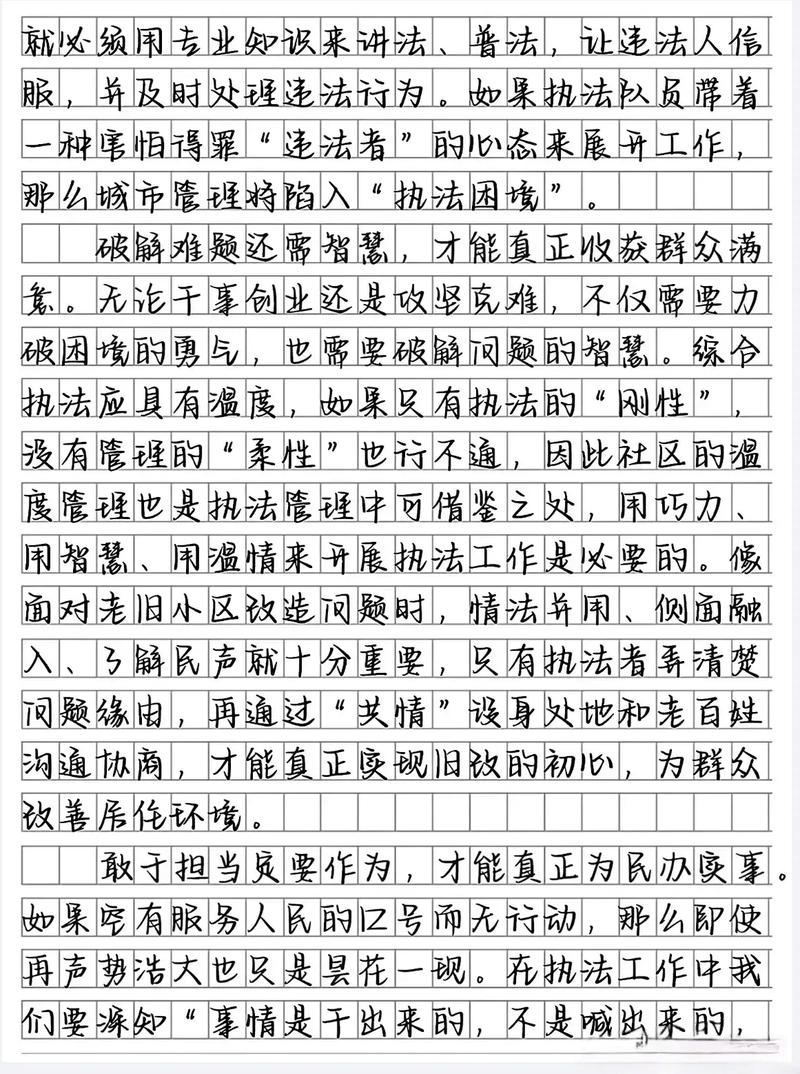 就必须用专业知识来讲法、普法，让违法人信
服，并及时处理违法行为。如果执法队员带着
一种害怕得罪“违法者”的心态来展开工作，
那么城市管理将陷入“执法困境”。
破解难题还需智慧，才能真正收获群众满
意。无论干事创业还是攻坚克难，不仅需要力
破困境的勇气，也需要破解问题的智慧。综合
执法应具有温度，如果只有执法的“刚性”，
没有管理的“柔性”也行不通，因此社区的温
度管理也是执法管理中可借鉴之处，用巧力、
用智慧、用温情来开展执法工作是必要的。像
面对老旧小区改造问题时，情法并用、侧面融
入、了解民声就十分重要，只有执法者弄清楚
问题缘由，再通过“共情”设身处地和老百姓
沟通协商，才能真正实现旧改的初心，为群众
改善居住环境。
敢于担当贵要作为，才能真正为民办实事。
如果空有服务人民的口号而无行动，那么即使
再声势浩大也只是昙花一现。在执法工作中我
们要深知“事情是干出来的，不是喊出来的，